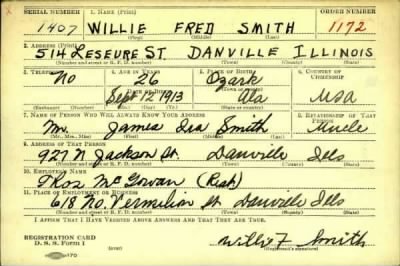 SERIAL NUMBER 1. NAME (Print) ORDER NUMBER
1407 WILLIE FRED SMITH 1172
(First) (Middle) (Last)
2. ADDRESS (Print)
514 LESEURE ST. DANVILLE ILLINOIS
(Number and street or R. F. D. number) (Town) (County) (State)
3. TELEPHONE 4. AGE IN YEARS 5. PLACE OF BIRTH 6. COUNTRY OF CITIZENSHIP
No 26 Ozark
DATE OF BIRTH
Sept 12 1913 Ala USA
(Exchange) (Number) (Mo.) (Day) (Yr.) (State or country)
7. NAME OF PERSON WHO WILL ALWAYS KNOW YOUR ADDRESS 8. RELATIONSHIP OF THAT PERSON
Mr. James Ira Smith Uncle
(Mr., Mrs., Miss) (First) (Middle) (Last)
9. ADDRESS OF THAT PERSON
927 N Jackson St. Danville Ills
(Number and street or R. F. D. number) (Town) (County) (State)
10. EMPLOYER'S NAME
Thos McGowan
11. PLACE OF EMPLOYMENT OR BUSINESS
618 No. Vermilion St Danville Ills
(Number and street or R. F. D. number) (Town) (County) (State)
I AFFIRM THAT I HAVE VERIFIED ABOVE ANSWERS AND THAT THEY ARE TRUE.
REGISTRATION CARD
D. S. S. Form 1
Willie F Smith
(Registrant's signature)